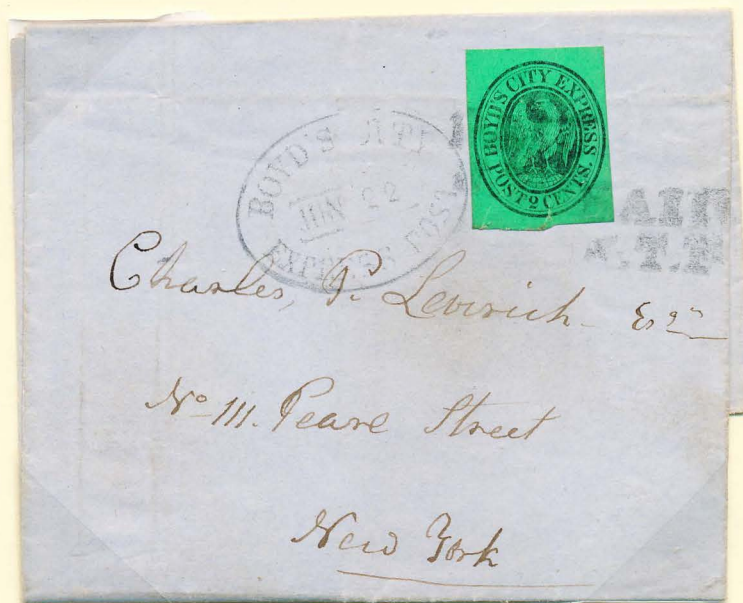 BOYD'S CITY EXPRESS
POST 2 CENTS.
BOYD'S CITY
JUN 22
EXPRESS POST
Charles, P. Leverich Esqr
No 111. Pearl Street
New York